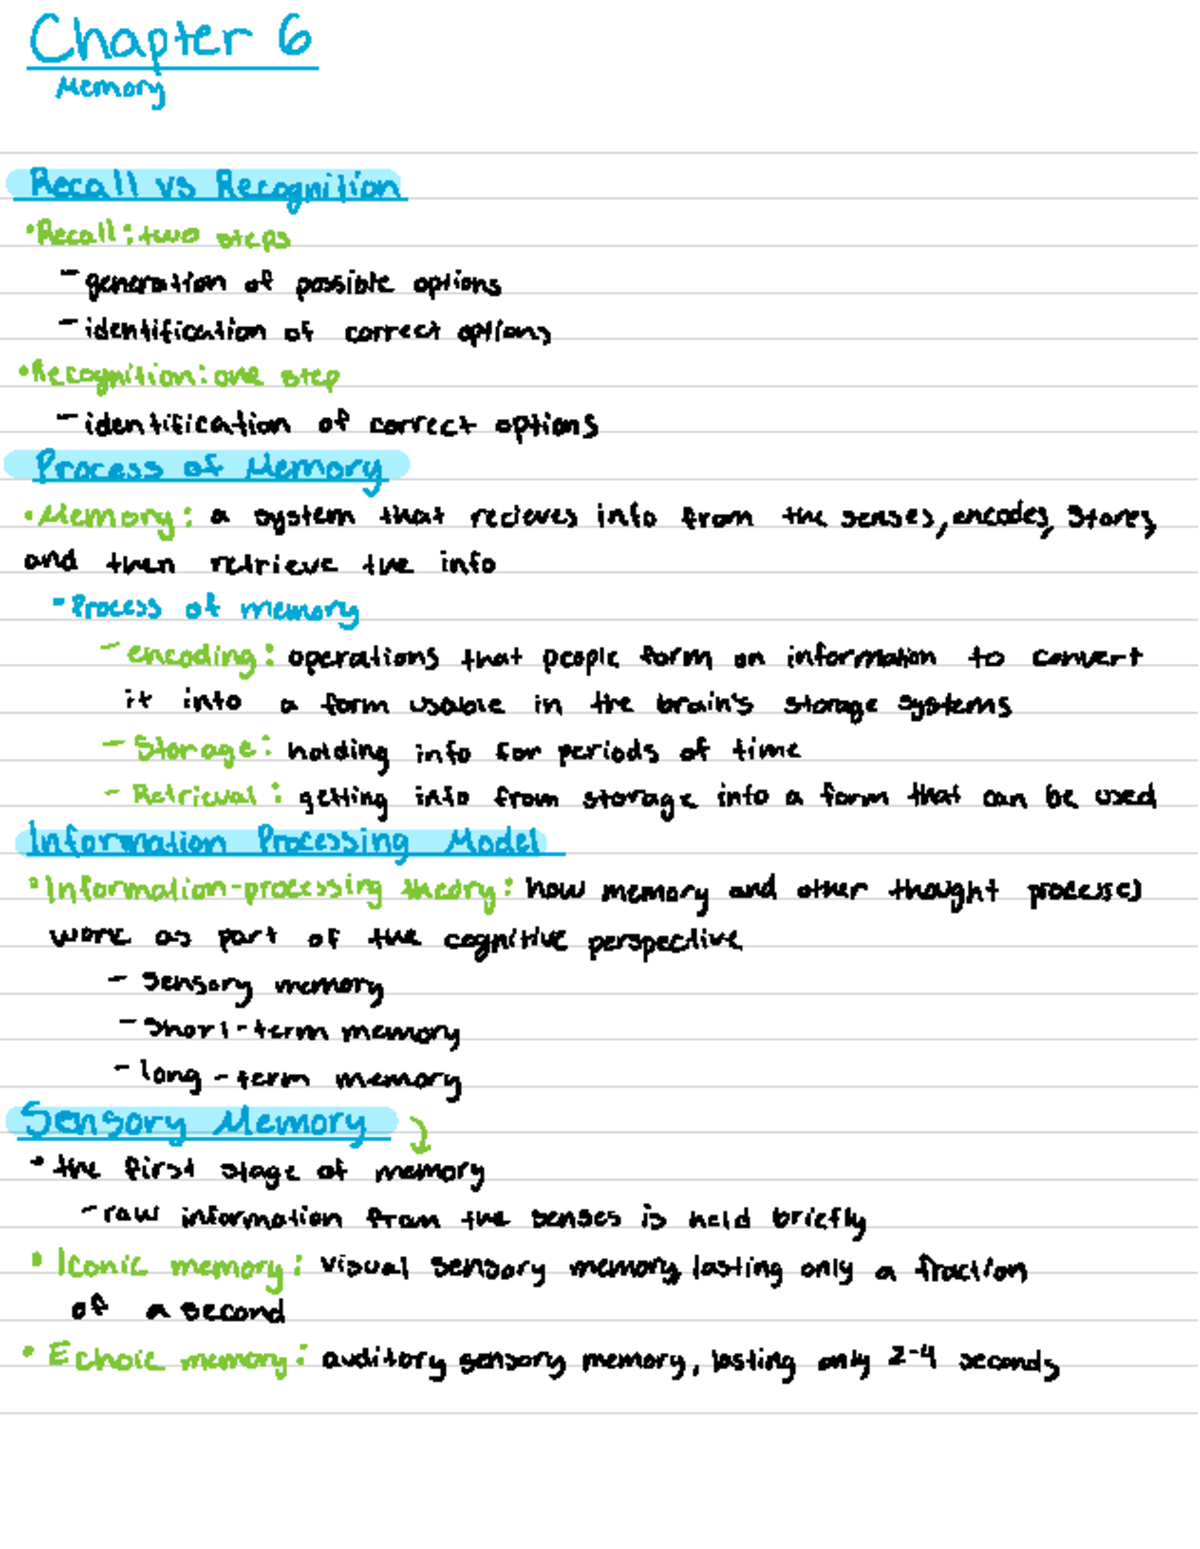 Chapter 6
Memory
Recall vs Recognition
•Recall: two steps
- generation of possible options
- identification of correct options
•Recognition: one step
- identification of correct options
Process of Memory
•Memory: a system that recieves info from the senses, encodes, stores,
and then retrieve the info
- Process of memory
- encoding: operations that people form on information to convert
it into a form usable in the brain's storage systems
- Storage: holding info for periods of time
- Retrieval: getting info from storage into a form that can be used
Information Processing Model
•Information-processing theory: how memory and other thought processes
work as part of the cognitive perspective
- Sensory memory
- Short-term memory
- long-term memory
Sensory Memory
• the first stage of memory
- raw information from the senses is held briefly
• Iconic memory: visual sensory memory, lasting only a fraction
of a second
• Echoic memory: auditory sensory memory, lasting only 2-4 seconds